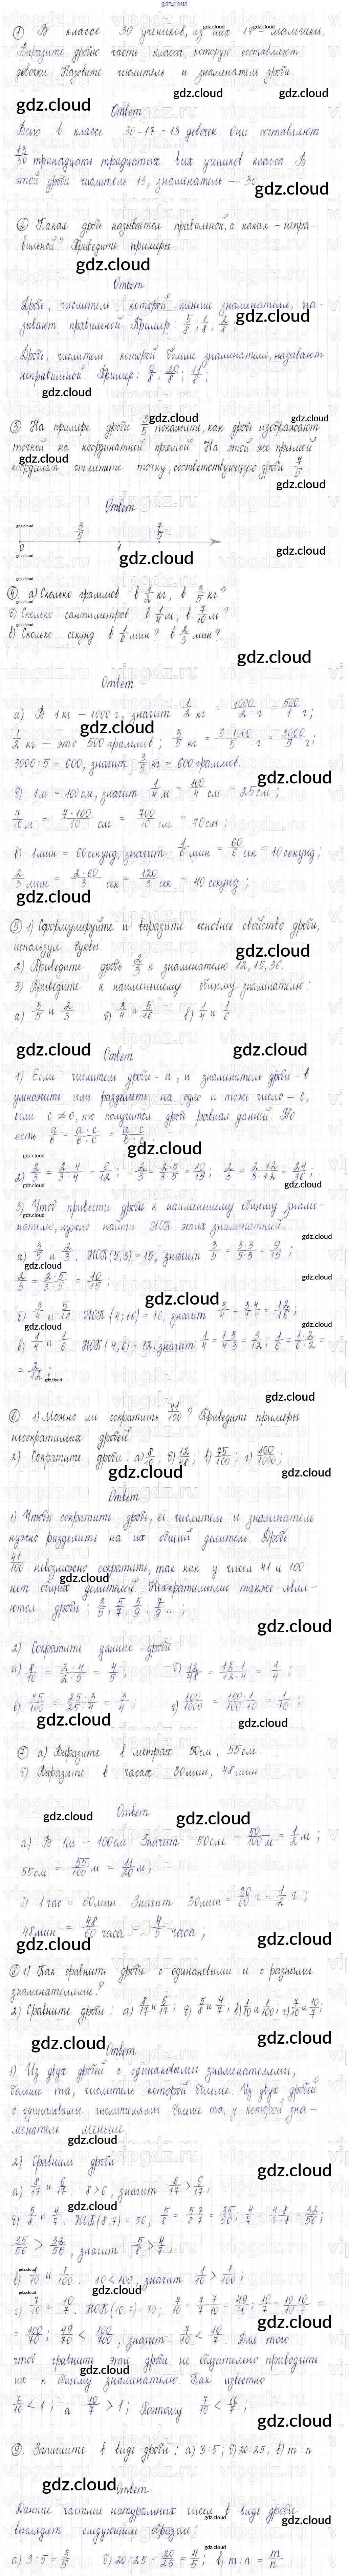 gdz.cloud
① В классе 30 учеников, из них 17 — мальчики.
Выразите дробью часть класса, которую составляют
девочки. Назовите числитель и знаменатель дроби.
gdz.cloud gdz.cloud
gdz.cloud
Ответ
Всего в классе 30-17=13 девочек. Они составляют
13/30 тринадцать тридцатых всех учеников класса. В
этой дроби числитель 13, знаменатель — 30.
gdz.cloud
② Какая дробь называется правильной, а какая – непра-
вильной? Приведите примеры.
gdz.cloud
Ответ
Дробь, числитель которой меньше знаменателя, на-
зывают правильной. Пример: 5/8; 1/8; 2/8;
gdz.cloud
Дробь, числитель которой больше знаменателя, называют
неправильной. Пример: 9/8; 20/8; 11/8;
gdz.cloud
③ На примере дроби 3/5 покажите, как дроби изображают
точкой на координатной прямой. На этой же прямой
координат отметьте точку, соответствующую дроби 7/5.
gdz.cloud
Ответ
3/5 7/5
0 1
gdz.cloud
④ а) Сколько граммов в 1/2 кг, в 3/5 кг?
б) Сколько сантиметров в 1/4 м, в 7/10 м?
в) Сколько секунд в 1/6 мин? в 2/3 мин?
gdz.cloud
Ответ
а) В 1 кг – 1000 г, значит 1/2 кг = 1000/2 г = 500/1 г;
1/2 кг – это 500 граммов; 3/5 кг = 3·1000/5 г = 3000/5 г;
3000:5 = 600, значит 3/5 кг = 600 граммов.
б) 1м = 100см, значит 1/4 м = 100/4 см = 25см;
7/10 м = 7·100/10 см = 700/10 см = 70см;
в) 1мин = 60секунд, значит 1/6 мин = 60/6 сек = 10секунд;
2/3 мин = 2·60/3 сек = 120/3 сек = 40 секунд;
gdz.cloud
⑤ 1) Сформулируйте и выразите основное свойство дроби,
используя буквы.
2) Приведите дробь 2/3 к знаменателю 12, 15, 36.
3) Приведите к наименьшему общему знаменателю:
а) 3/5 и 2/3 б) 3/4 и 5/16 в) 1/4 и 1/6
gdz.cloud gdz.cloud
Ответ
1) Если числитель дроби – а, и знаменатель дроби – в
умножить или разделить на одно и тоже число – с,
если с ≠ 0, то получится дробь равная данной. То
есть
gdz.cloud
2) 2/3 = 2·4/3·4 = 8/12; 2/3 = 2·5/3·5 = 10/15; 2/3 = 2·12/3·12 = 24/36;
3) Чтоб привести дроби к наименьшему общему знаме-
нателю, нужно найти НОК этих знаменателей.
а) 3/5 и 2/3. НОК(5,3)=15, значит 3/5 = 3·3/5·3 = 9/15;
2/3 = 2·5/3·5 = 10/15;
gdz.cloud
б) 3/4 и 5/16 НОК (4;16) = 16, значит 3/4 = 3·4/4·4 = 12/16;
в) 1/4 и 1/6 НОК (4,6) = 12, значит 1/4 = 1·3/4·3 = 3/12; 1/6 = 1·2/6·2 =
= 2/12;
gdz.cloud
⑥ 1) Можно ли сократить 41/100? Приведите примеры
несократимых дробей.
2) Сократите дроби: а) 8/10 б) 12/48; в) 75/100; г) 100/1000;
gdz.cloud gdz.cloud
Ответ
1) Чтобы сократить дробь, её числитель и знаменатель
нужно разделить на их общий делитель. Дробь
41/100 невозможно сократить, так как у чисел 41 и 100
нет общих делителей. Несократимые также явля-
ются дроби: 3/5; 5/7; 5/9; 7/9 ...;
gdz.cloud
2) Сократим данные дроби
а) 8/10 = 2·4/2·5 = 4/5; б) 12/48 = 12·1/12·4 = 1/4;
в) 75/100 = 25·3/25·4 = 3/4; г) 100/1000 = 100·1/100·10 = 1/10;
gdz.cloud gdz.cloud
⑦ а) Выразите в метрах 50см, 55см.
б) Выразите в часах 30мин, 48мин
Ответ
gdz.cloud gdz.cloud
а) В 1м – 100см Значит 50см = 50/100 м = 1/2 м;
55см = 55/100 м = 11/20 м;
б) 1 час = 60мин. Значит 30мин = 30/60 ч = 1/2 ч;
48мин = 48/60 часа = 4/5 часа;
gdz.cloud gdz.cloud
⑧ 1) Как сравнить дроби с одинаковыми и с разными
знаменателями?
2) Сравните дроби: а) 8/17 и 6/17; б) 5/8 и 4/7; в) 1/10 и 1/100; г) 7/10 и 10/7;
gdz.cloud gdz.cloud
Ответ
1) Из двух дробей с одинаковыми знаменателями,
больше та, числитель которой больше. Из двух дробей
с одинаковыми числителями больше та, у которой зна-
менатель меньше.
gdz.cloud
2) Сравним дроби
а) 8/17 и 6/17. 8>6, значит 8/17 > 6/17;
б) 5/8 и 4/7. НОК(8,7) = 56, 5/8 = 5·7/8·7 = 35/56; 4/7 = 4·8/7·8 = 32/56;
35/56 > 32/56, значит 5/8 > 4/7;
в) 1/10 и 1/100. 10<100, значит 1/10 > 1/100;
gdz.cloud
г) 7/10 и 10/7. НОК(10,7)=70; 7/10 = 7·7/7·10 = 49/70; 10/7 = 10·10/7·10 =
= 100/70; 49/70 < 100/70, значит 7/10 < 10/7. Для того
чтоб сравнить эти дроби не обязательно приводить
их к общему знаменателю. Как известно
7/10 < 1; а 10/7 > 1; Поэтому
gdz.cloud
⑨. Запишите в виде дроби: а) 3:5; б) 20:25; в) m:n
gdz.cloud
Ответ
Данные частные натуральных чисел в виде дроби
выглядят следующим образом:
gdz.cloud
а) 3:5 = 3/5 б) 20:25 = 20/25 = 4/5; в) m:n = m/n